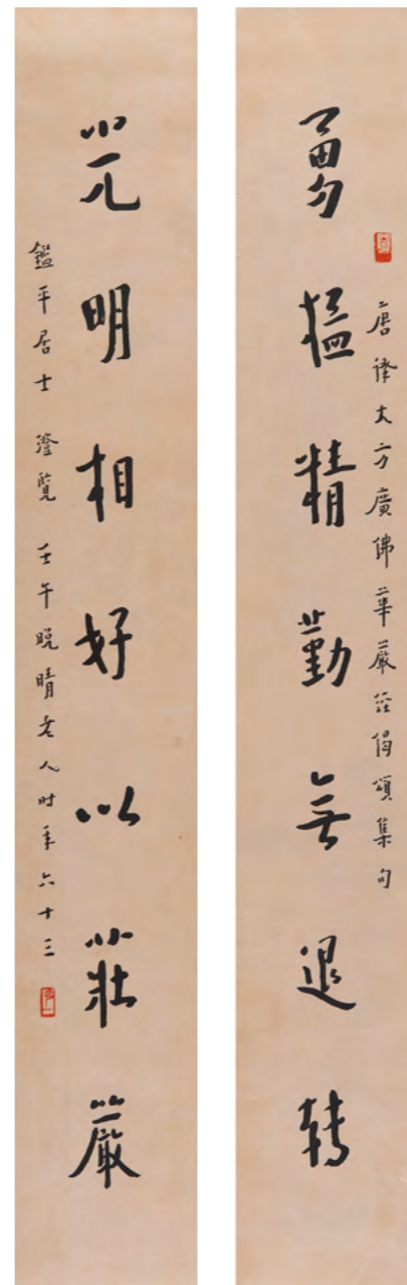 勇猛精勤無退转
唐譯大方廣佛華嚴經偈頌集句
光明相好以莊嚴
鑑平居士 澄覽 壬午晚晴老人时年六十三